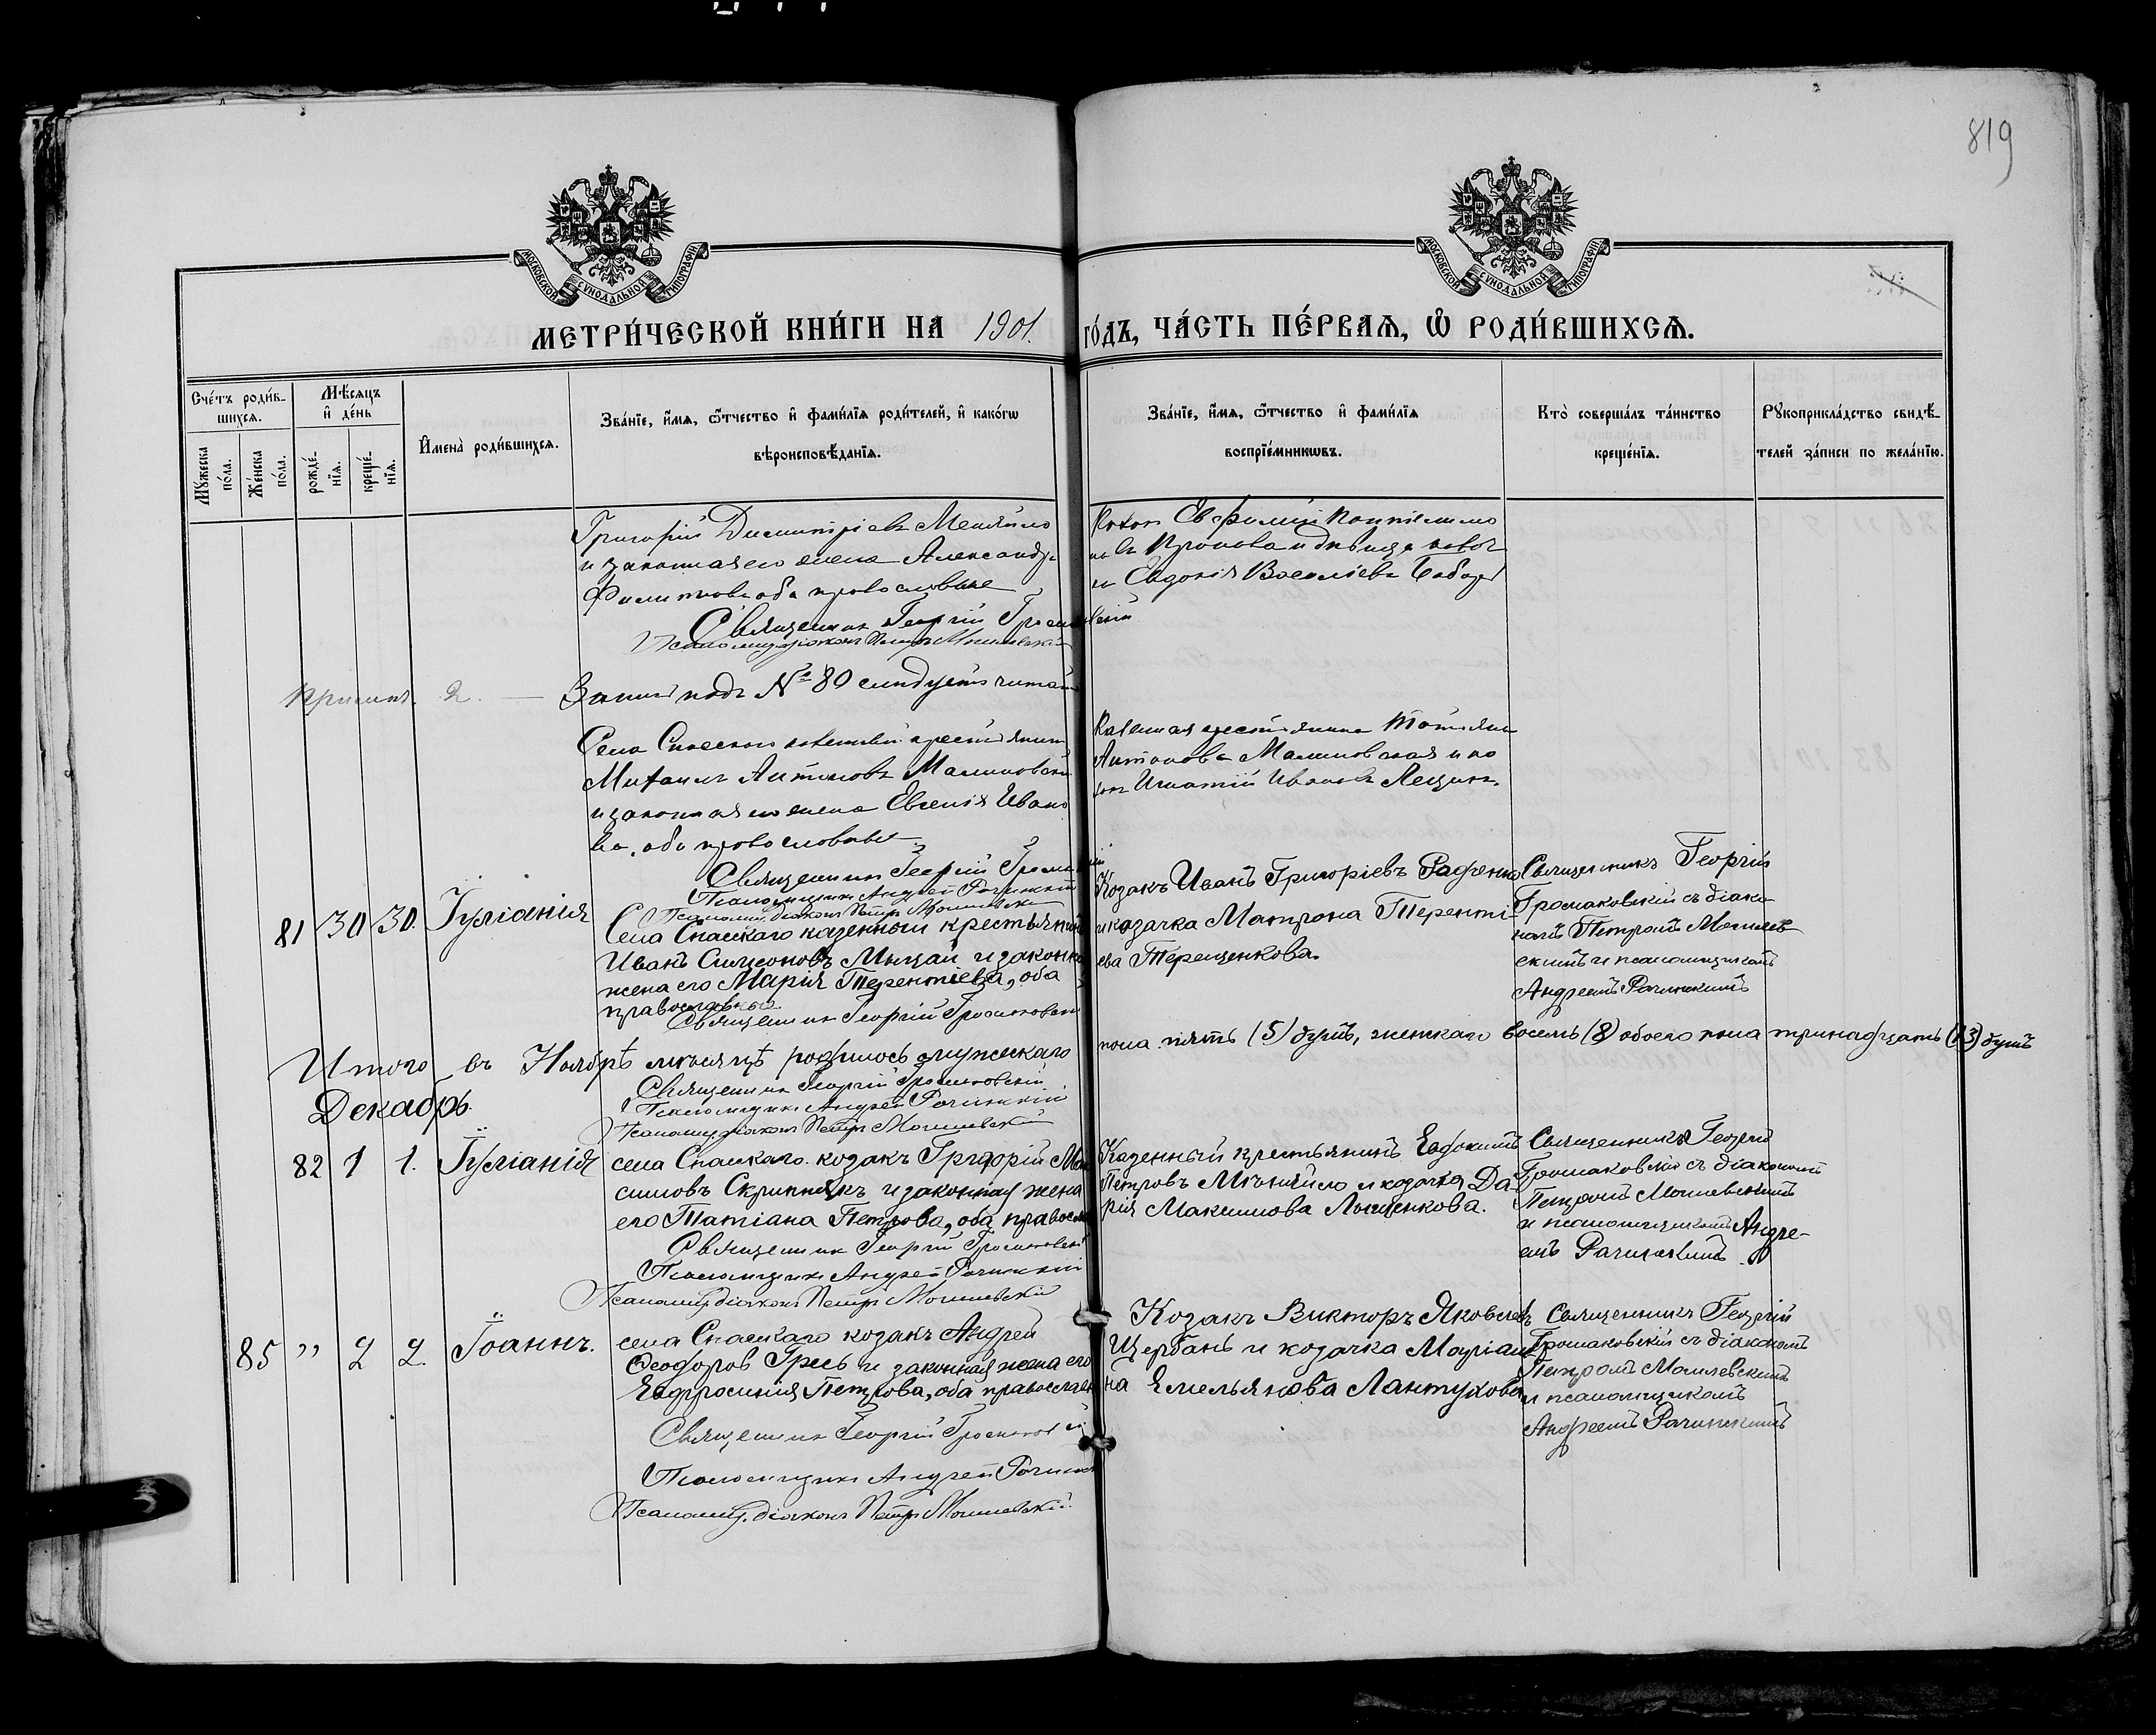 819
МОСКОВСКОЙ СѴНОДАЛЬНОЙ ТИПОГРАФІИ
МОСКОВСКОЙ СѴНОДАЛЬНОЙ ТИПОГРАФІИ
МЕТРИ́ЧЕСКОЙ КНИ́ГИ НА 1901. ГО́ДЪ, ЧА́СТЬ ПЕ́РВАѦ, Ѽ РОДИ́ВШИХСѦ.
Сче́тъ роди́в-
шихсѧ.
Мꙋ́жеска по́ла.
Же́нска по́ла.
Мѣ́сѧцъ
и҆ де́нь
рожде́-
нїѧ.
креще́-
нїѧ.
И҆мена̀ роди́вшихсѧ.
Зва́нїе, и҆́мѧ, ѻ҆́тчество и҆ фами́лїѧ роди́телей, и҆ како́гѡ
вѣроисповѣ́данїѧ.
Зва́нїе, и҆́мѧ, ѻ҆́тчество и҆ фами́лїѧ
воспрїе́мникѡвъ.
Кто̀ соверша́лъ та́инство
креще́нїѧ.
Рꙋкоприкла́дство свидѣ́-
телей за́писи по жела́нїю.
Григорій Димитріевъ Меняйло
и законная его жена Александра
Филиппова оба православные
Священникъ Георгій Громаковскій
Псаломщ. діаконъ Петръ Могилевскій
Козакъ Евфимій
и дѣвица
Евдокія Василіева
Примѣч. 2. — Запись подъ № 80 слѣдуетъ читать
Села Спасскаго казенный крестьянинъ
Михаилъ Антоновъ Малиновскій
и законная его жена Евгенія Ивано
ва, оба православные
Священникъ Георгій Громаковскій
Псаломщикъ Андрей Рачинскій
Псаломщ. діаконъ Петръ Могилевскій
Казенная крестьянка Татіана
Антонова Малиновская и ко
закъ Игнатій Ивановъ Лещенк
81 30 30. Іуліанія
Села Спасскаго казенный крестьянинъ
Иванъ Симеоновъ Мыцай и законная
жена его Марія Терентіева, оба
православные.
Священникъ Георгій Громаковскій
Козакъ Иванъ Григоріевъ Радченко
и козачка Матрона Теренті-
ева Терещенкова.
Священникъ Георгій
Громаковскій съ діако-
номъ Петромъ Могилев-
скимъ и псаломщикомъ
Андреемъ Рачинскимъ
Итого въ Ноябрѣ мѣсяцѣ родилось мужескаго пола пять (5) душъ, женскаго восемь (8) обоего пола тринадцать (13) душъ
Священникъ Георгій Громаковскій
Псаломщикъ Андрей Рачинскій
Псаломщ. діаконъ Петръ Могилевскій
Декабрь.
82 1 1. Іуліанія
села Спасскаго козакъ Григорій Мак
симовъ Скрипникъ и законная жена
его Татіана Петрова, оба православ
Священникъ Георгій Громаковскій
Псаломщикъ Андрей Рачинскій
Псаломщ. діаконъ Петръ Могилевскій
Казенный крестьянинъ Евдокимъ
Петровъ Мѣняйло и козачка Да-
рія Максимова Лященкова.
Священникъ Георгій
Громаковскій съ діакономъ
Петромъ Могилевскимъ
и псаломщикомъ Андре-
емъ Рачинскимъ.
85 " 2 2. Іоаннъ.
села Спасскаго козакъ Андрей
Ѳеодоровъ Гресь и законная жена его
Евфросинія Петрова, оба православн
Священникъ Георгій Громаковскій
Псаломщикъ Андрей Рачинскій
Псаломщ. діаконъ Петръ Могилевскій
Козакъ Викторъ Яковлевъ
Щербань и козачка Маріам-
на Емельянова Лантухова
Священникъ Георгій
Громаковскій съ діакономъ
Петромъ Могилевскимъ
и псаломщикомъ
Андреемъ Рачинскимъ